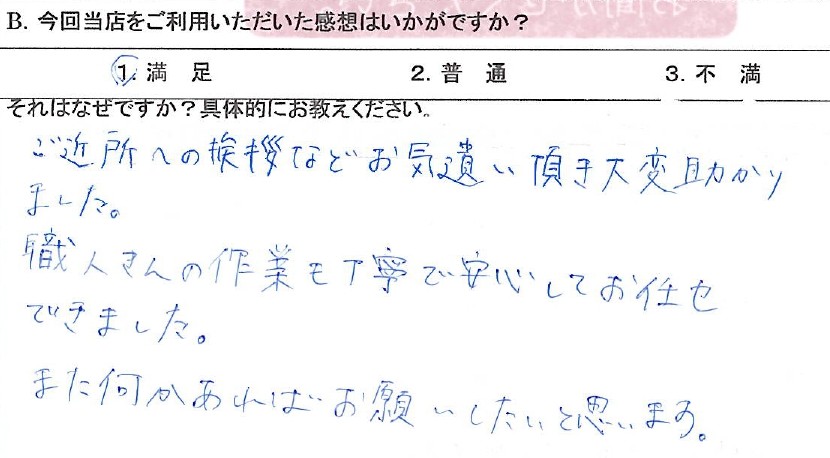 B. 今回当店をご利用いただいた感想はいかがですか？
1. 満 足 2. 普 通 3. 不 満
それはなぜですか？具体的にお教えください。
ご近所への挨拶などお気遣い頂き大変助かり
ました。
職人さんの作業も丁寧で安心してお任せ
できました。
また何かあればお願いしたいと思います。